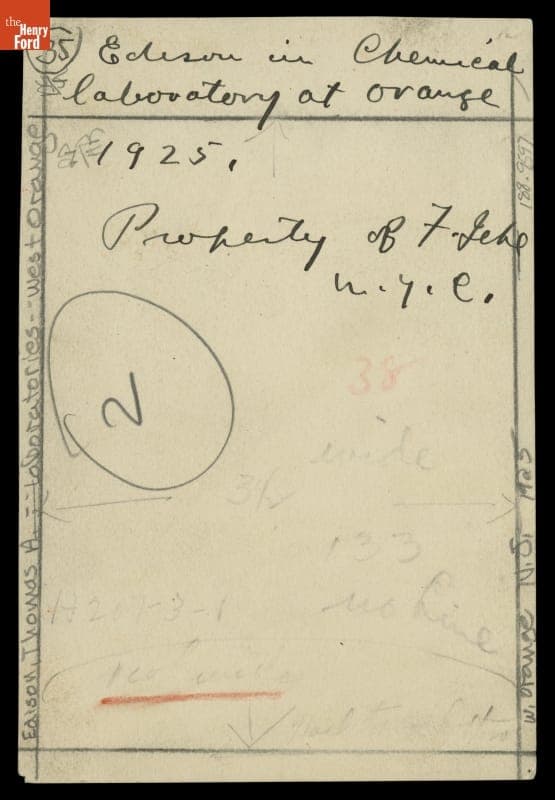 the
Henry
Ford
35
Edison in Chemical
laboratory at orange
1925.
Property of F. Jehl
n.y.c.
2
38
wide
3½
133
no line
H207-3-1
no line
Edison, Thomas A. -- Laboratories -- West Orange
188.9597
W. Orange N.J. 1925